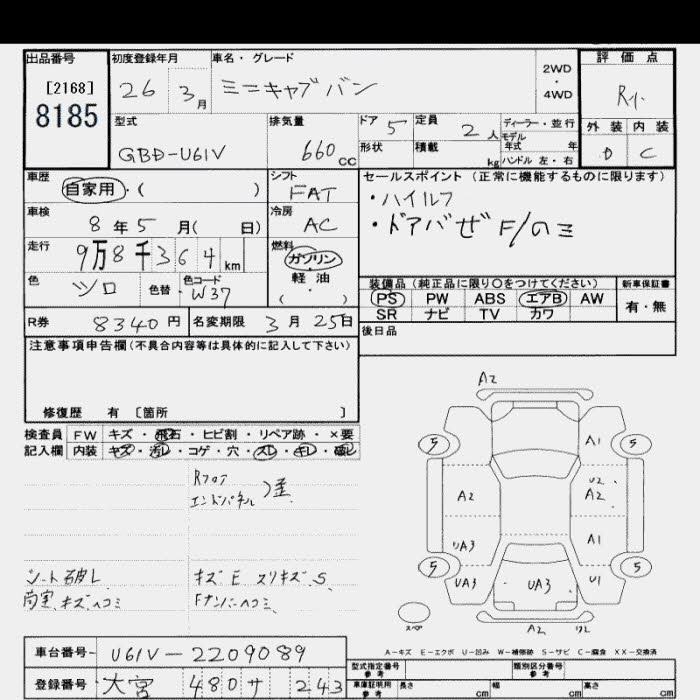 出品番号
[2168]
8185
初度登録年月
26 3月
車名・グレード
ミニキャブバン
2WD
・
4WD
評価点
R小
外装 内装
D C
型式
GBD-U61V
排気量
660 CC
ドア 5
定員 2人
形状
積載 kg
ディーラー・並行
モデル
年式 年
ハンドル 左・右
車歴
自家用・( )
シフト
FAT
セールスポイント (正常に機能するものに限ります)
・ハイルフ
・ドアバゼ F/のミ
車検
8年5月( 日)
冷房
AC
走行
9万8千364km
燃料
ガソリン
・
軽油
( )
色
ツロ
色替・
色コード
W37
装備品 (純正品に限り○をつけてください)
PS PW ABS エアB AW
SR ナビ TV カワ
新車保証書
有・無
後日品
R券 8340円
名変期限 3月25日
注意事項申告欄(不具合内容等は具体的に記入して下さい)
修復歴 有 [箇所 ]
検査員 FW キズ・飛石・ヒビ割・リペア跡・×要
記入欄 内装 キズ・汚レ・コゲ・穴・スレ・キレ・破レ
Rフロア
エンドパネル )歪
シート破レ
荷室キズヘコミ
キズE スリキズS
Fナンバーヘコミ
A2
5 A1 5
A2
U2
A2
UA3 A1
5 5
UA3 UA3 U1
スペア
A2 W2
A-キズ E-エクボ U-凹み W-補修跡 S-サビ C-腐食 XX-交換済
車台番号 U61V-2209089
登録番号 大宮 480 サ 243
型式指定番号
参考
類別区分番号
参考
車庫証明用
参考
長さ cm
幅 cm
高さ cm